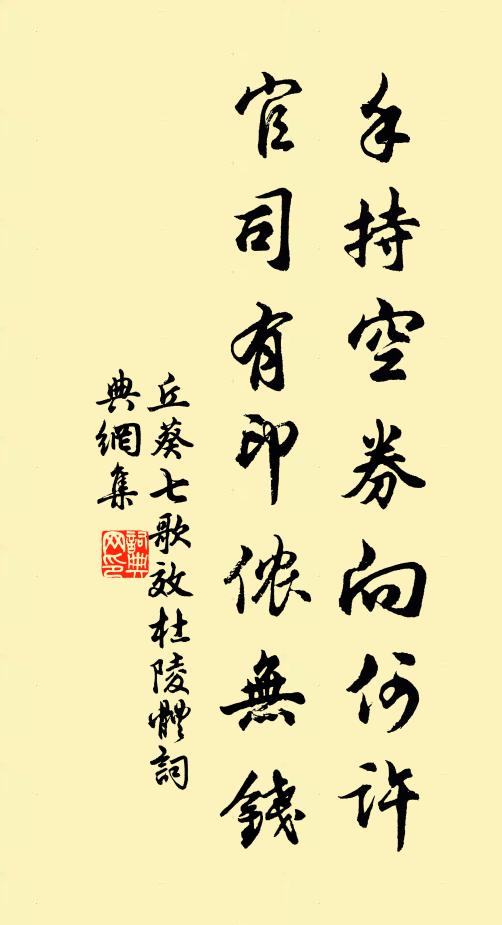 手持空券向何许
官司有印侬無錢
丘葵七歌效杜陵體詞
典網集
詞典
网印